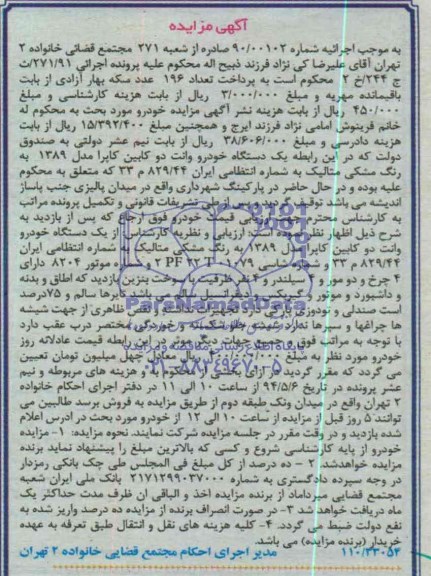 آگهی مزایده
به موجب اجرائیه شماره ۹۰/۰۰۱۰۲ صادره از شعبه ۲۷۱ مجتمع قضائی خانواده ۲
تهران آقای علیرضا کی نژاد فرزند ذبیح اله محکوم علیه پرونده اجرائی ۲۷۱/۹۱/ث
ج ۲۴۴/خ ۲ محکوم است به پرداخت تعداد ۱۹۶ عدد سکه بهار آزادی از بابت
باقیمانده مهریه و مبلغ ۳/۰۰۰/۰۰۰ ریال از بابت هزینه کارشناسی و مبلغ
۴۵۰/۰۰۰ ریال از بابت هزینه نشر آگهی مزایده خودرو مورد بحث به محکوم له
خانم فرینوش امامی نژاد فرزند ایرج و همچنین مبلغ ۱۵/۳۹۲/۴۰۰ ریال از بابت
هزینه دادرسی و مبلغ ۳۸/۶۰۶/۰۰۰ ریال از بابت نیم عشر دولتی به صندوق
دولت که در این رابطه یک دستگاه خودرو وانت دو کابین کاپرا مدل ۱۳۸۹ به
رنگ مشکی متالیک به شماره انتظامی ایران ۳۳ م ۸۲۹/۴۴ که متعلق به محکوم
علیه بوده و در حال حاضر در پارکینگ شهرداری واقع در میدان پالیزی جنب پاساژ
اندیشه می باشد توقیف گردید و پس از طی تشریفات قانونی و تکمیل پرونده مراتب
به کارشناس محترم ارزیابی قیمت خودرو فوق ارجاع که پس از بازدید به
شرح ذیل اظهار نظر نموده است: ارزیابی و نظریه کارشناسی از یک دستگاه خودرو
وانت دو کابین کاپرا مدل ۱۳۸۹ رنگ مشکی متالیک به شماره انتظامی ایران
۳۳ م ۸۲۹/۴۴ و شماره شاسی و شماره موتور ۴۲۰۸ دارای
۴ چرخ و دو محور و سیلندر و ۴ نفر ظرفیت با سوخت بنزین بازدید که اطاق و بدنه
و داشبورد و موتور و گیربکس و سالم می باشد تایرها سالم و ۷۵درصد
است صندلی و تودوزی تجهیزات نقص ظاهری از جهت شیشه
ها چراغها و سپرها ندارد شکسته و خوردگی مختصر درب عقب دارد
با توجه به مراتب فوق و جمیع جهات دیگر موثر در این رابطه قیمت عادلانه روز
خودرو مورد نظر به مبلغ ریال معادل چهل میلیون تومان تعیین
می گردد که مقرر گردید از محکوم و هزینه های مربوطه و نیم
عشر پرونده در تاریخ ۹۴/۵/۶ از ساعت ۱۰ الی ۱۱ در دفتر اجرای احکام خانواده
۲ تهران واقع در میدان ونک طبقه دوم از طریق مزایده به فروش برسد طالبین می
توانند ۵ روز قبل از مزایده از ساعت ۱۰ الی ۱۲ از خودرو مورد بحث در آدرس اعلام
شده بازدید و در وقت مقرر در جلسه مزایده شرکت نمایند. نحوه مزایده: ۱- مزایده
خودرو از پایه کارشناسی شروع و کسی که بالاترین مبلغ را پیشنهاد نماید برنده
مزایده خواهدشد. ۲ - ده درصد از کل مبلغ فی المجلس طی چک بانکی رمزدار
در وجه سپرده دادگستری به شماره ۲۱۷۱۲۹۹۰۳۷۰۰۰ بانک ملی ایران شعبه
مجتمع قضایی میرداماد از برنده مزایده اخذ و الباقی ان ظرف مدت حداکثر یک
ماه دریافت خواهد شد ۳- در صورت انصراف برنده از مزایده ده درصد واریز شده به
نفع دولت ضبط می گردد. ۴- کلیه هزینه های نقل و انتقال طبق تعرفه به عهده
خریدار (برنده مزایده) می باشد.
۱۱۰/۳۳۰۵۴ مدیر اجرای احکام مجتمع قضایی خانواده ۲ تهران
ParsNamadData
۰۲۱-۸۸۳۴۹۶۷۰-۵